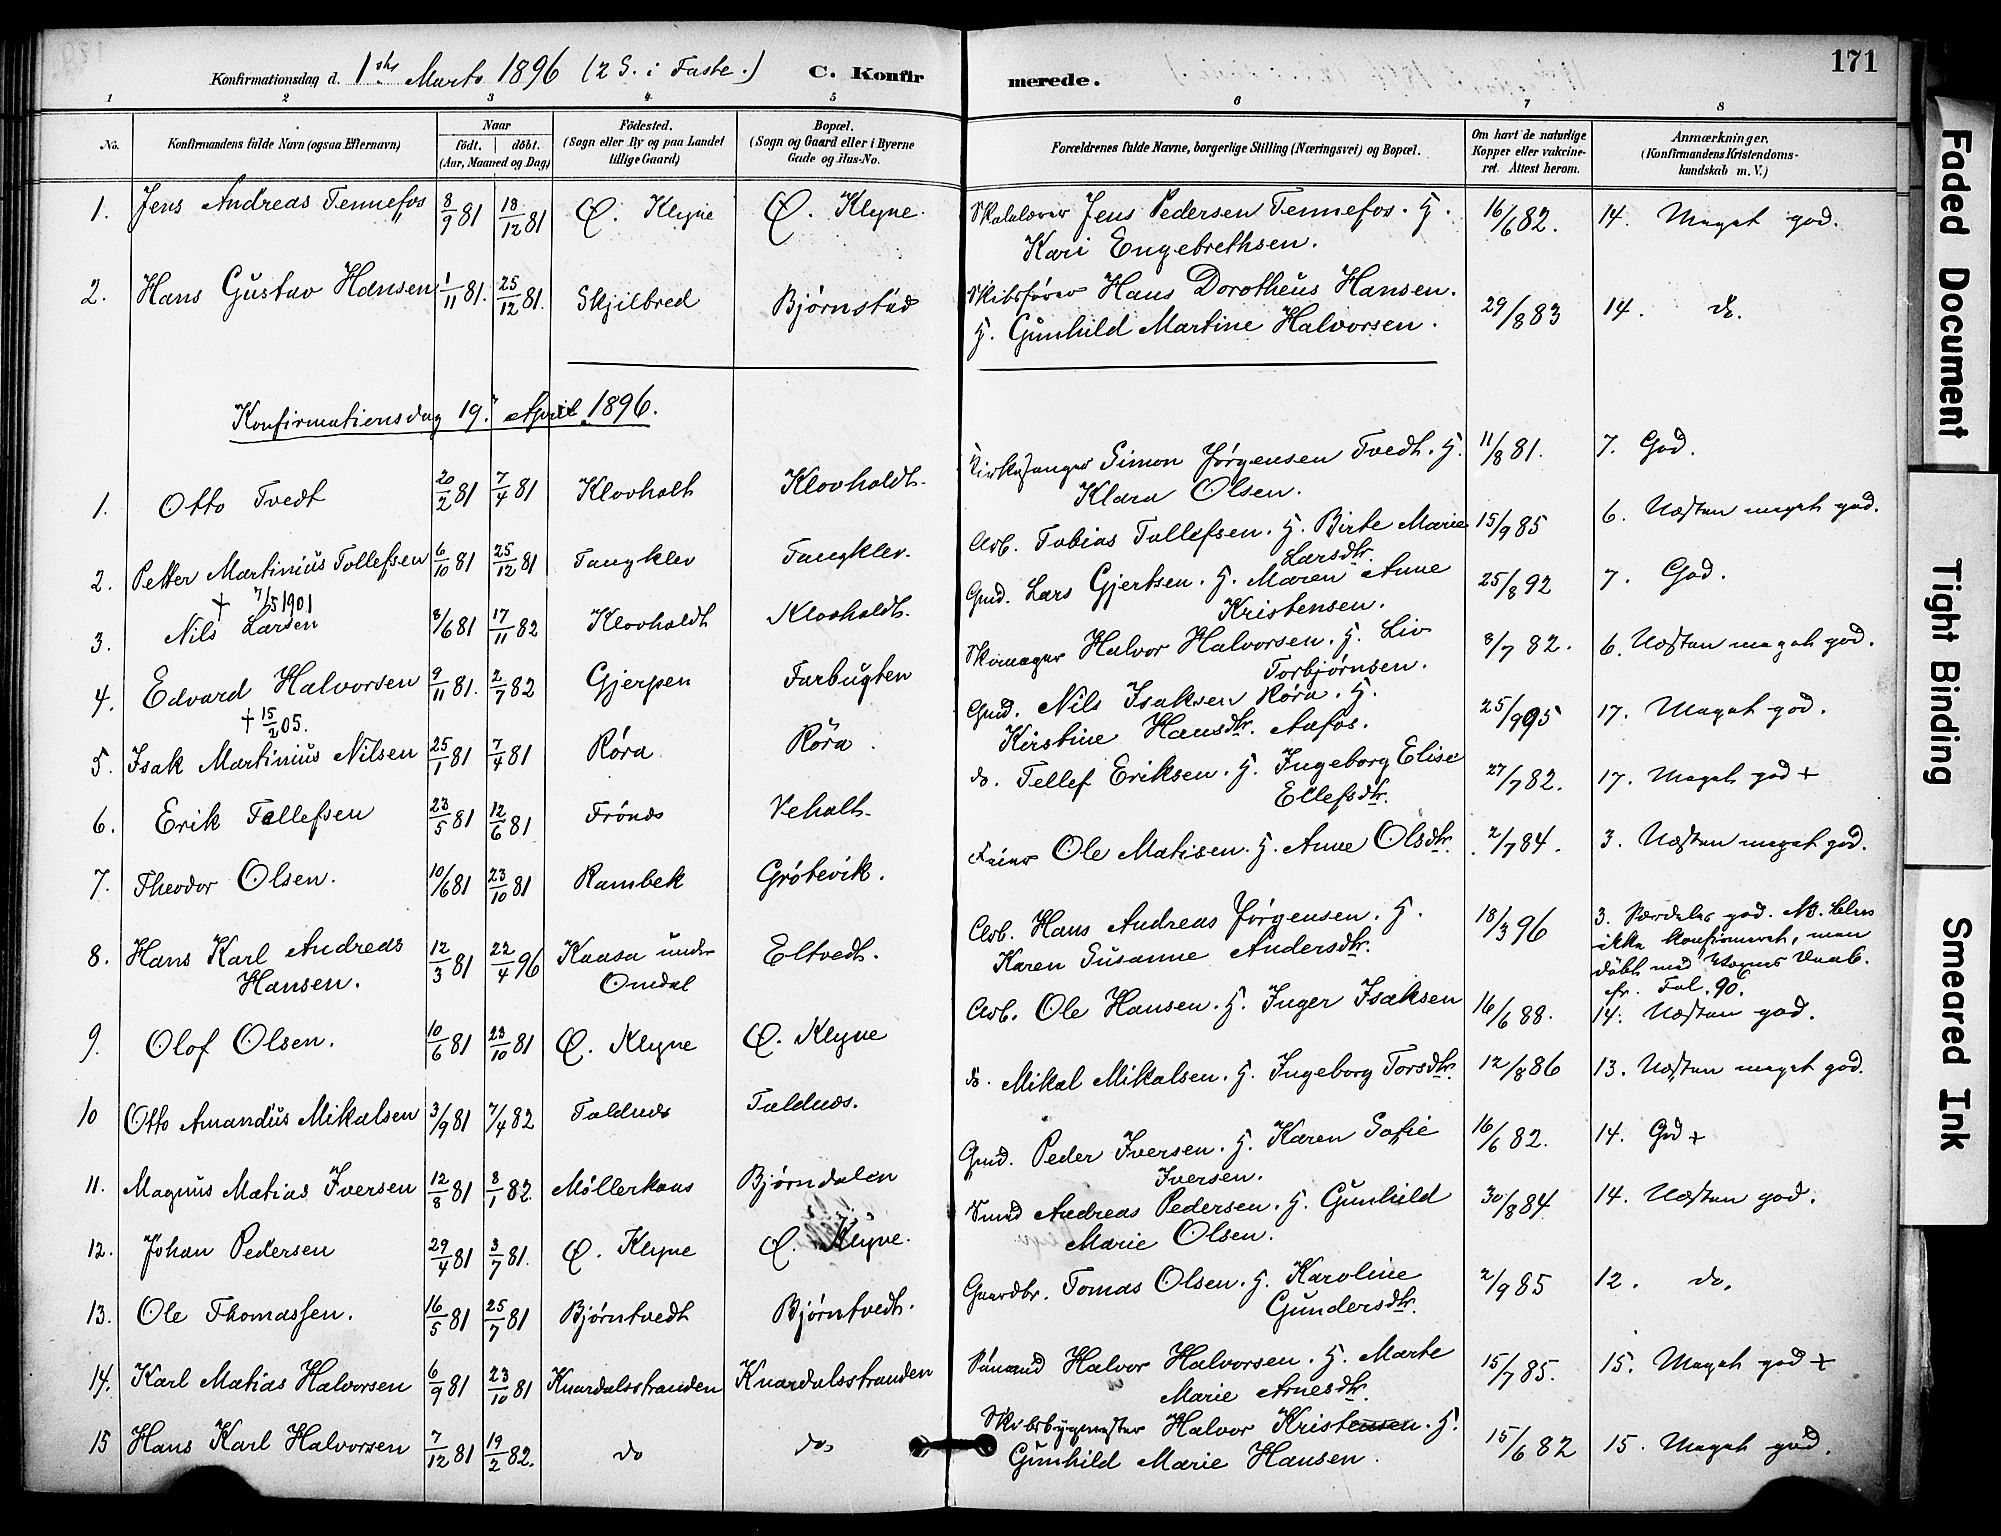 171
Konfirmationsdag d. 1ste Marts 1896 (2 S. i Faste.) C. Konfirmerede.
1 2 3 4 5 6 7 8
No. Konfirmandens fulde Navn (ogsaa Efternavn) Naar født. døbt. (Aar, Maaned og Dag) Födested. (Sogn eller By og paa Landet tillige Gaard) Bopæl. (Sogn og Gaard eller i Byerne Gade og Hus-No. Forældrenes fulde Navne, borgerlige Stilling (Næringsvei) og Bopæl. Om havt de naturlige Kopper eller vaccineret. Attest herom. Anmærkninger. (Konfirmandens Kristendomskundskab m. V.)
1. Jens Andreas Tennefos 8/9 81 18/12 81 Ø. Klyve Ø. Klyve. Jens Pedersen Tennefos. H. 16/6 82. 14. Meget god.
Kari Engebrethsen.
2. Hans Gustav Hansen 1/11 81. 25/12 81. Skjilbred Bjørnstad Skibsfører Hans Dorotheus Hansen. 29/8 83 14. do.
H. Gunhild Martine Halvorsen.
Konfirmationsdag 19. April 1896.
1. Otto Tvedt 20/2 81 7/4 81 Klovholt Klovholdt. Kirkesanger Simon Jørgensen Tvedt. H. 11/8 81. 7. God.
Klara Olsen.
2. Petter Martinius Tollefsen 6/10 81 25/12 81 Tangklev Tangklev. Arb. Tobias Tollefsen. H. Birte Marie 15/9 85 6. Næsten meget god.
Larsdtr.
† 7/5 1901
3. Nils Larsen 8/6 81 17/11 82 Klovholdt Klovholdt. Gmd. Lars Gjertsen. H. Maren Anne 25/8 92 7. God.
Kristensen.
4. Edvard Halvorsen 9/11 81. 2/7 82 Gjerpen Farbugten Skomager Halvor Halvorsen. H. Liv 8/7 82. 6. Næsten meget god.
Torbjørnsen.
† 15/2 05.
5. Isak Martinius Nilsen 25/1 81 7/4 81 Røra Røra. Gmd. Nils Isaksen Røra. H. 25/9 95 17. Meget god.
Kirstine Hansdtr. Aafos.
6. Erik Tellefsen 23/5 81 12/6 81 Frønes Veholt. do. Tellef Eriksen. H. Ingeborg Elise 27/7 82. 17. Meget god +
Ellefsdtr.
7. Theodor Olsen. 10/6 81 23/10 81 Rambek Grøtevik. Feier Ole Matisen. H. Anne Olsdtr. 2/7 84. 3. Næsten meget god.
8. Hans Karl Andreas 12/3 81 22/4 96 Kaasa under Eltvedt. Arb. Hans Andreas Jørgensen. H. 18/3 96 3. Særdeles god. NB. blev
Hansen. Omdal Karen Susanne Andersdtr. ikke konfirmeret, men
døbt med Voxnes Daab.
fr. Fol. 90.
9. Olof Olsen. 10/6 81 23/10 81 Ø. Klyve Ø. Klyve Arb. Ole Hansen. H. Inger Isaksen 16/6 88. 14. Næsten god.
10 Otto Amandus Mikalsen 3/9 81 7/4 82 Toldnes Toldnes. do. Mikal Mikalsen. H. Ingeborg Torsdtr. 12/8 86 13. Næsten meget god.
11. Magnus Matias Iversen 12/8 81 8/1 82 Møllerkaas Bjørndalen Gmd. Peder Iversen. H. Karen Sofie 16/6 82. 14. God +
Iversen.
12. Johan Pedersen 29/4 81 3/7 81. Ø. Klyve Ø. Klyve. Smed Andreas Pedersen. H. Gunhild 30/8 84 14. Næsten god.
Marie Olsen.
13. Ole Thomassen. 16/5 81 25/7 81 Bjørntvedt Bjørntvedt. Gaardbr. Tomas Olsen. H. Karoline 2/9 85 12. do.
Gundersdtr.
14. Karl Matias Halvorsen 6/9 81 23/10 81 Knardalsstranden Knardalsstranden Sømand Halvor Halvorsen. H. Marte 15/7 85. 15. Meget god +
Marie Arnesdtr.
15 Hans Karl Halvorsen 7/12 81 19/2 82. do do Skibsbygmester Halvor Kristensen. H. 15/6 82 15. Meget god.
Gunhild Marie Hansen.
Faded Document
Tight Binding
Smeared Ink